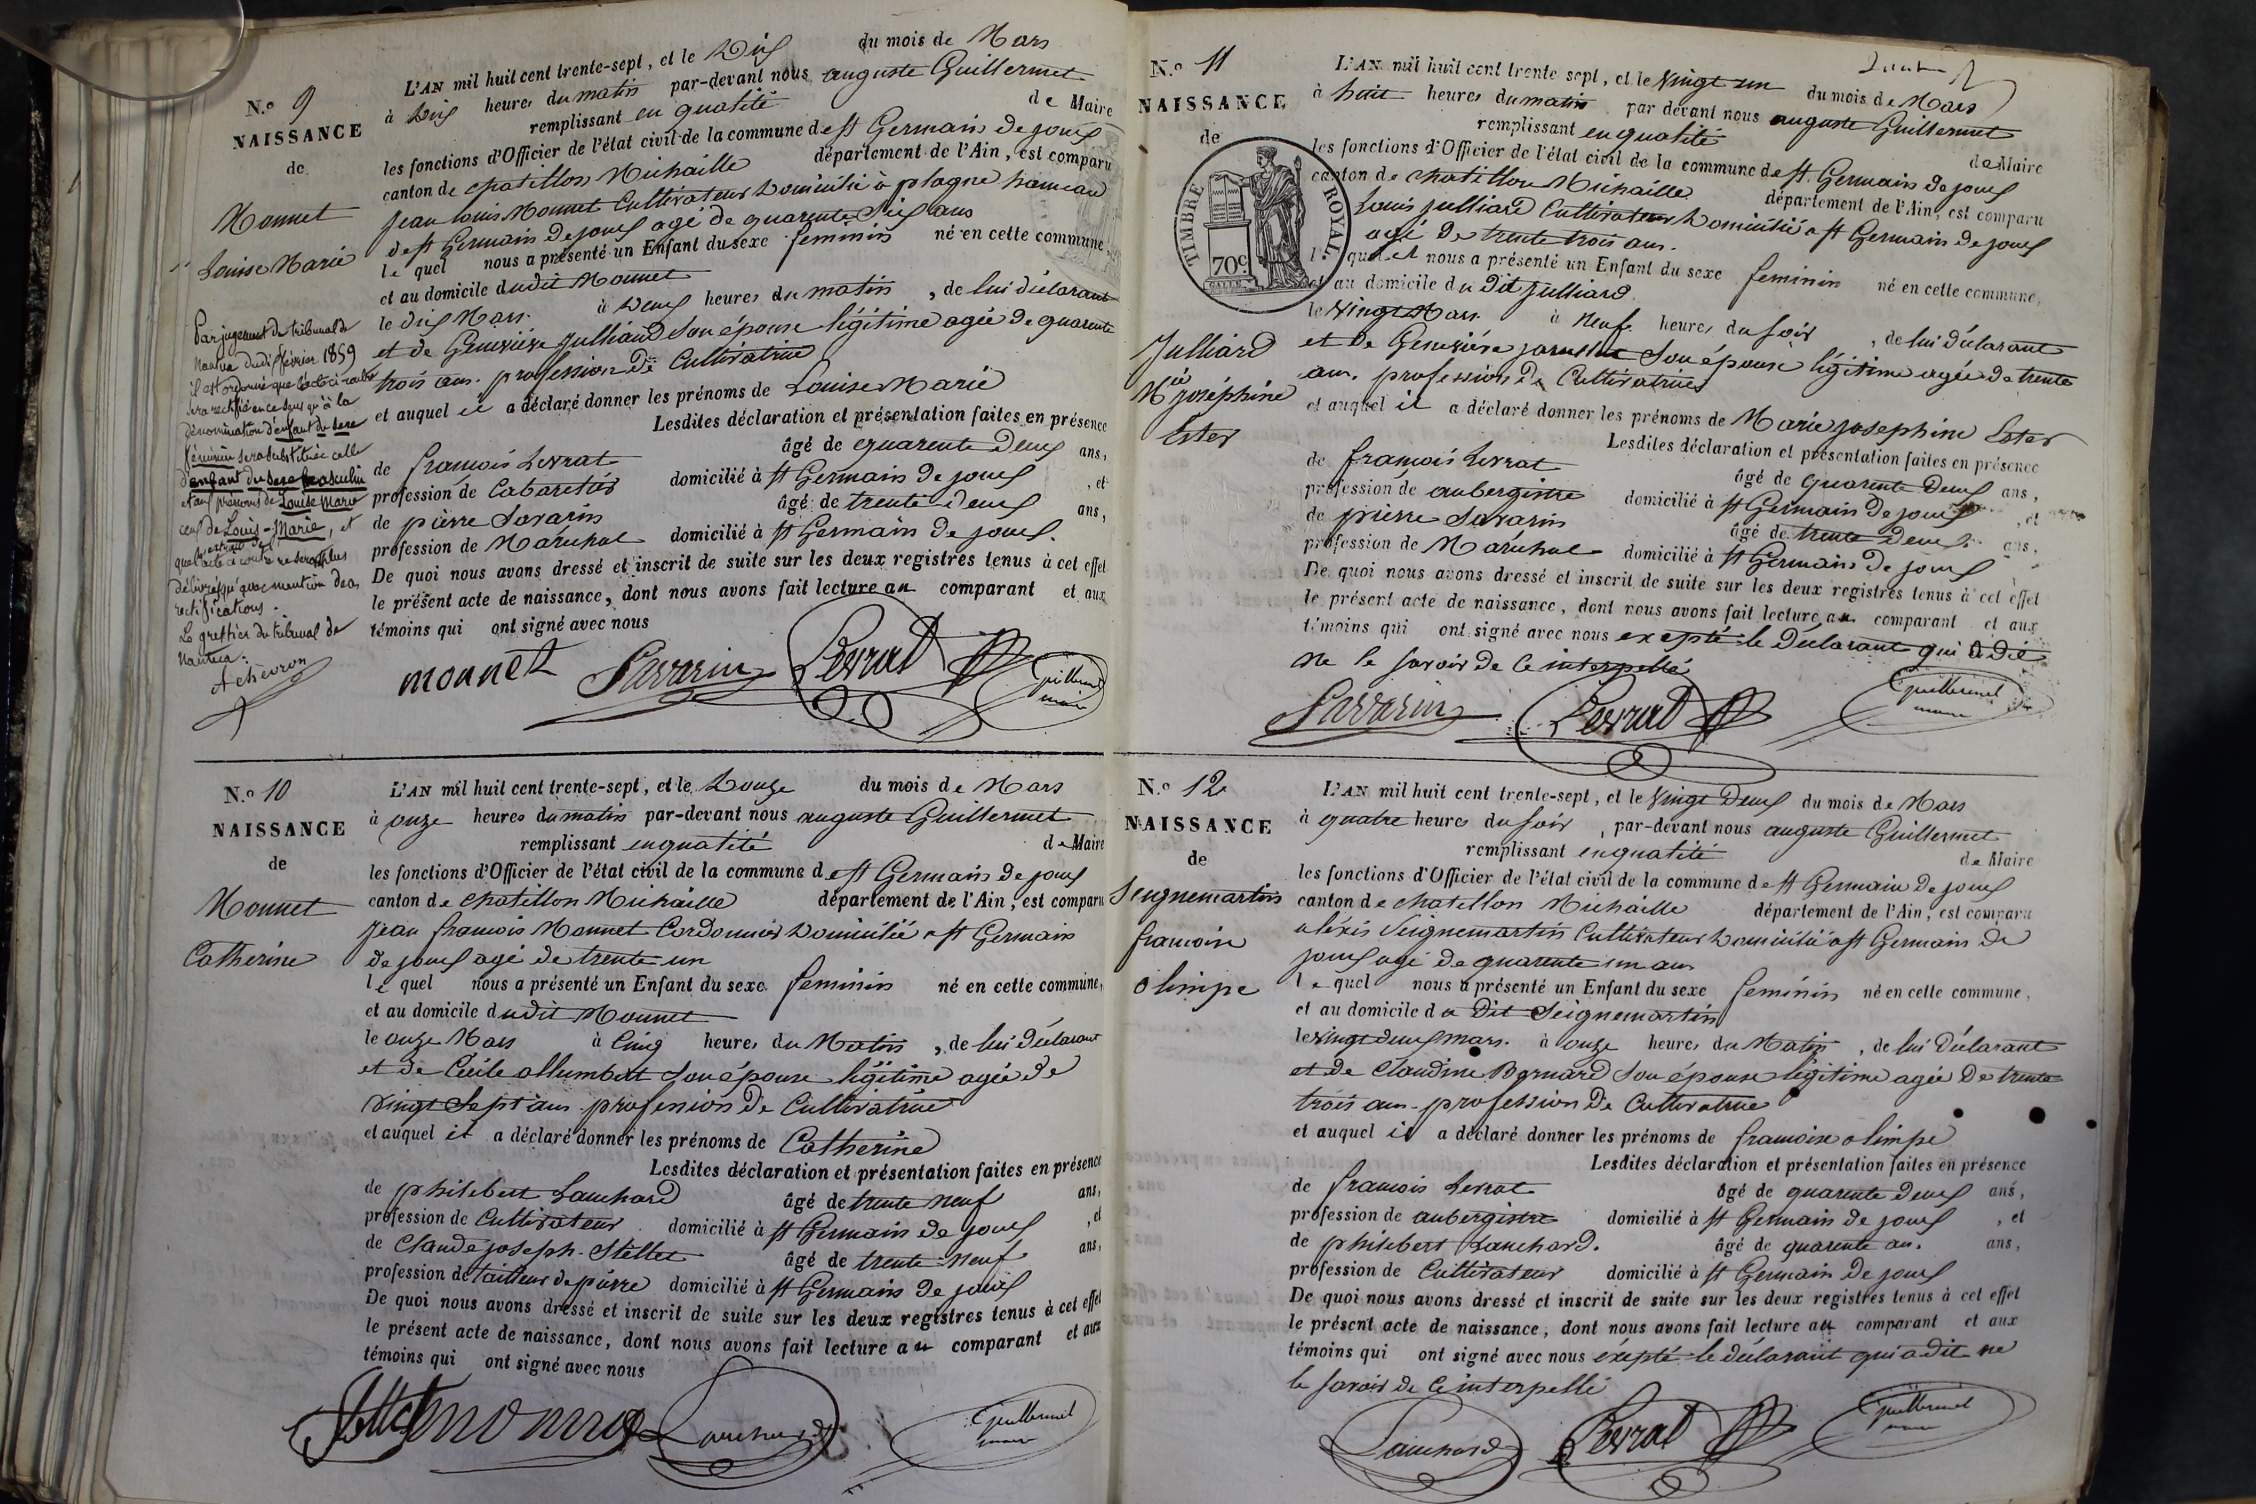 N.º 9
NAISSANCE
de
Monnet
Louise Marie
Par jugement du tribunal de
Nantua du dix février 1859
il est ordonné que l'acte ci-contre
sera rectifié en ce sens qu'à la
dénomination d'enfant du sexe
féminin sera substituée celle
d'enfant du sexe masculin
et aux prénoms de Louise Marie
ceux de Louis-Marie, et
que extrait de
l'acte ci contre ne sera plus
délivré qu'avec mention des
rectifications.
Le greffier du tribunal de
Nantua.
Achevron
L'AN mil huit cent trente-sept, et le Dix du mois de Mars
à Dix heures du matin par-devant nous auguste Guillermet
remplissant en qualité de Maire
les fonctions d'Officier de l'état civil de la commune de st Germain de joux
canton de chatillon Michaille département de l'Ain, est comparu
jean louis Monnet Cultivateur Domicilié à plagne hameau
de st Germain de joux agé de quarente Six ans
le quel nous a présenté un Enfant du sexe feminin né en cette commune
et au domicile dudit Monnet
le dix Mars à Deux heures du matin, de lui déclarant
et de Geneviève Julliard Son épouse légitime agée de quarente
trois ans profession de Cultivatrice
et auquel il a déclaré donner les prénoms de Louise Marie
Lesdites déclaration et présentation faites en présence
de francois Levrat âgé de quarente Deux ans,
profession de Cabaretier domicilié à st Germain de joux, et
de pierre Savarin âgé de trente deux ans,
profession de Maréchal domicilié à st Germain de joux.
De quoi nous avons dressé et inscrit de suite sur les deux registres tenus à cet effet
le présent acte de naissance, dont nous avons fait lecture au comparant et aux
témoins qui ont signé avec nous
monnet Savarin Levrat Guillermet
maire
N.º 10
NAISSANCE
de
Monnet
Catherine
L'AN mil huit cent trente-sept, et le Douze du mois de Mars
à onze heures du matin par-devant nous auguste Guillermet
remplissant en qualité de Maire
les fonctions d'Officier de l'état civil de la commune de st Germain de joux
canton de chatillon Michaille département de l'Ain, est comparu
jean francois Monnet Cordonnier Domicilié à st Germain
de joux agé de trente un
le quel nous a présenté un Enfant du sexe feminin né en cette commune,
et au domicile dudit Monnet
le onze Mars à Cinq heures du Matin, de lui déclarant
et de Cécile allumbert Son épouse légitime agée de
vingt Sept ans profession de Cultivatrice
et auquel il a déclaré donner les prénoms de Catherine
Lesdites déclaration et présentation faites en présence
de philibert Lanchard âgé de trente neuf ans,
profession de Cultivateur domicilié à st Germain de joux, et
de Claude joseph Stellet âgé de trente neuf ans,
profession de tailleur de pierre domicilié à st Germain de joux
De quoi nous avons dressé et inscrit de suite sur les deux registres tenus à cet effet
le présent acte de naissance, dont nous avons fait lecture au comparant et aux
témoins qui ont signé avec nous
Lanchard Guillermet
maire
N.º 11
NAISSANCE
de
TIMBRE ROYAL
70c
Julliard
Mie joséphine
Ester
L'AN mil huit cent trente sept, et le Vingt un du mois de Mars
à huit heures du matin par devant nous auguste Guillermet
remplissant en qualité de Maire
les fonctions d'Officier de l'état civil de la commune de st Germain de joux
canton de chatillon Michaille département de l'Ain, est comparu
Louis julliard Cultivateur Domicilié à st Germain de joux
agé de trente trois ans.
lequel nous a présenté un Enfant du sexe feminin né en cette commune,
et au domicile du Dit julliard
le Vingt Mars à Neuf heures du Soir, de lui déclarant
et de Geneviève Son épouse légitime agée de trente
ans. profession de Cultivatrice
et auquel il a déclaré donner les prénoms de Marie josephine Ester
Lesdites déclaration et présentation faites en présence
de francois Levrat âgé de quarente Deux ans,
profession de aubergiste domicilié à st Germain de joux, et
de pierre Savarin âgé de trente deux ans,
profession de Maréchal domicilié à st Germain de joux
De quoi nous avons dressé et inscrit de suite sur les deux registres tenus à cet effet
le présent acte de naissance, dont nous avons fait lecture au comparant et aux
témoins qui ont signé avec nous excepté le Déclarant qui a dit
ne le Savoir de Ce interpellé
Savarin Levrat Guillermet
maire
N.º 12
NAISSANCE
de
Seignemartin
francoise
olimpe
L'AN mil huit cent trente-sept, et le Vingt Deux du mois de Mars
à quatre heures du Soir, par-devant nous auguste Guillermet
remplissant en qualité de Maire
les fonctions d'Officier de l'état civil de la commune de st Germain de joux
canton de chatillon Michaille département de l'Ain, est comparu
aléxis Seignemartin Cultivateur Domicilié à st Germain de
joux agé de quarente un ans
le quel nous a présenté un Enfant du sexe feminin né en cette commune,
et au domicile du Dit Seignemartin
le Vingt deux mars à onze heures du Matin, de lui Déclarant
et de Claudine Bornard Son épouse légitime agée De trente
trois ans profession De Cultivatrice
et auquel il a déclaré donner les prénoms de francoise olimpe
Lesdites déclaration et présentation faites en présence
de francois Levrat âgé de quarente deux ans,
profession de aubergiste domicilié à st Germain de joux, et
de philibert Lanchard. âgé de quarente an. ans,
profession de Cultivateur domicilié à st Germain de joux
De quoi nous avons dressé et inscrit de suite sur les deux registres tenus à cet effet
le présent acte de naissance, dont nous avons fait lecture au comparant et aux
témoins qui ont signé avec nous éxepté le déclarant qui a dit ne
le Savoir de Ce interpellé
Lanchard Levrat Guillermet
maire